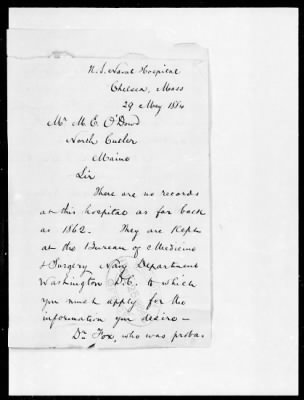 U.S. Naval Hospital
Chelsea, Mass
29 May 1884
Mr M. E. O'Dowd
North Cutler
Maine
Sir
There are no records
at this hospital as far back
as 1862. They are kept
at the Bureau of Medicine
& Surgery Navy Department
Washington D.C. to which
you must apply for the
information you desire –
Dr Fox, who was proba-